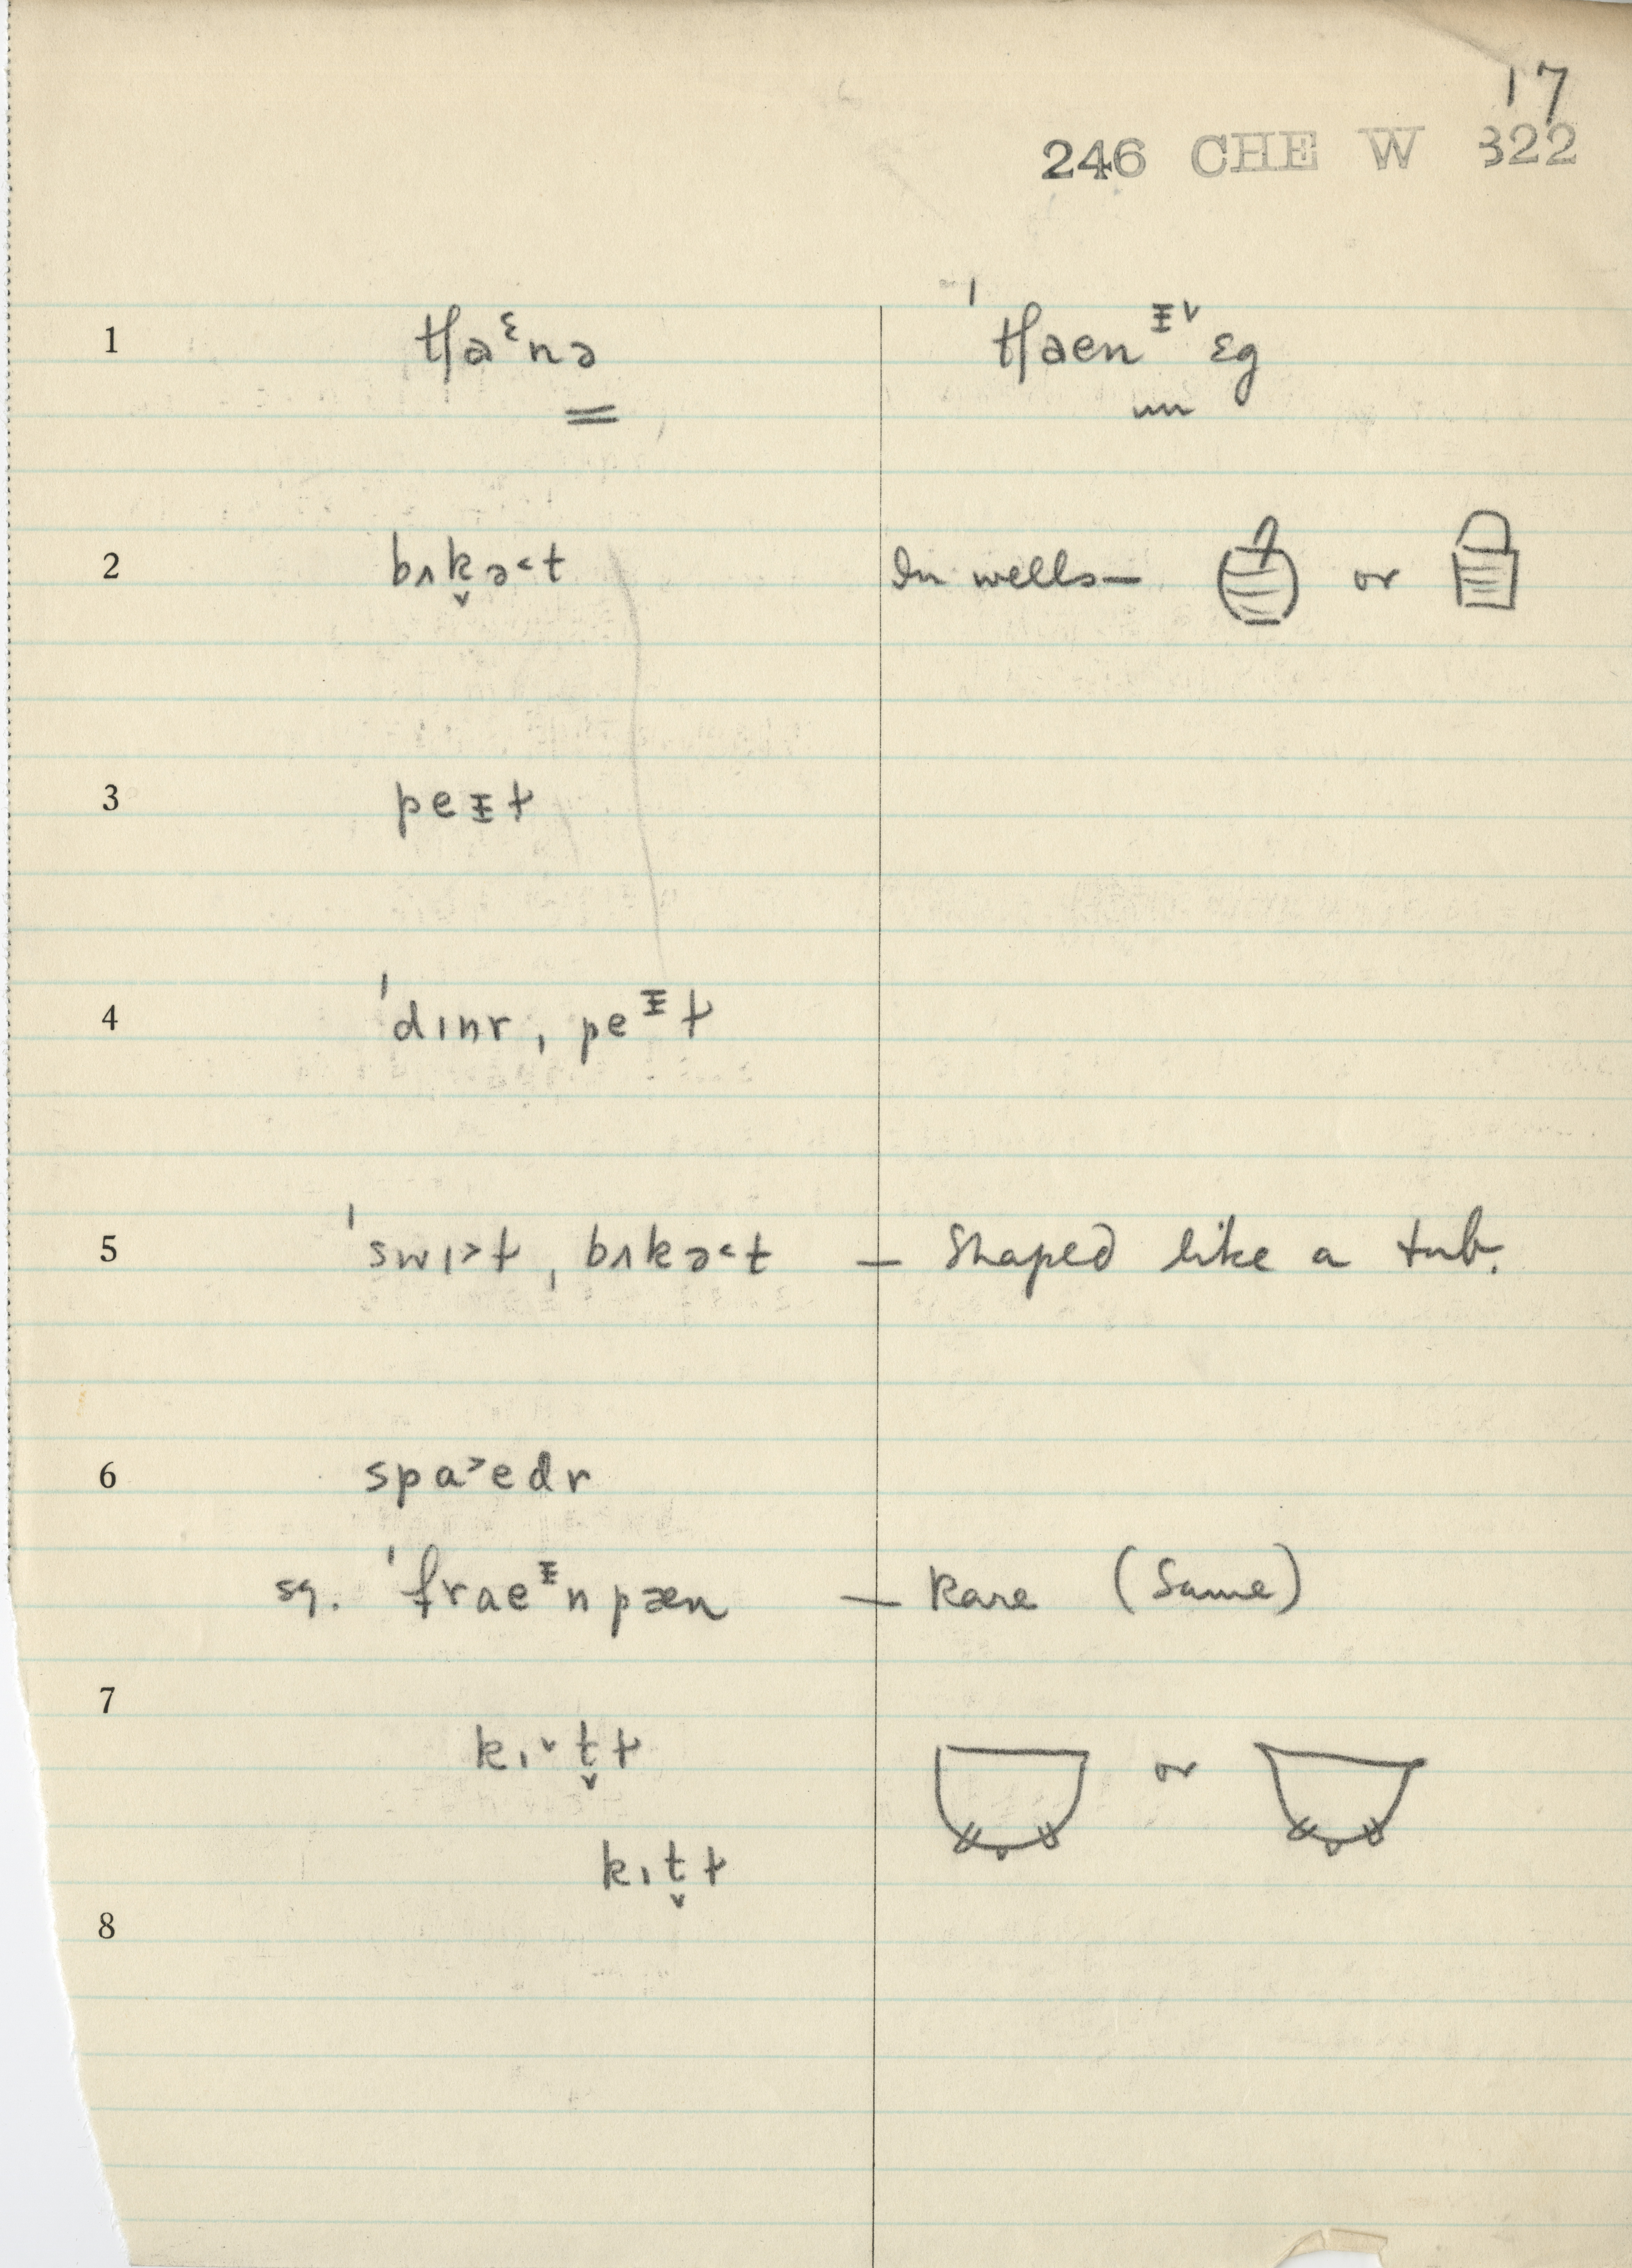 17
246 CHE W 322
1 tʃaᵋnə ˈtʃaenᶧ˅ɛg
2 bʌk̬ə˂t In wells— or
3 peᵻt
4 ˈdɪnr, peᶧt
5 ˈswɪ˃t, bʌkə˂t — Shaped like a tub.
6 spa˃edr
sq. ˈfraeᶧnpæn — Rare (Same)
7
kɪ˅t̬t or
kɪt̬t
8